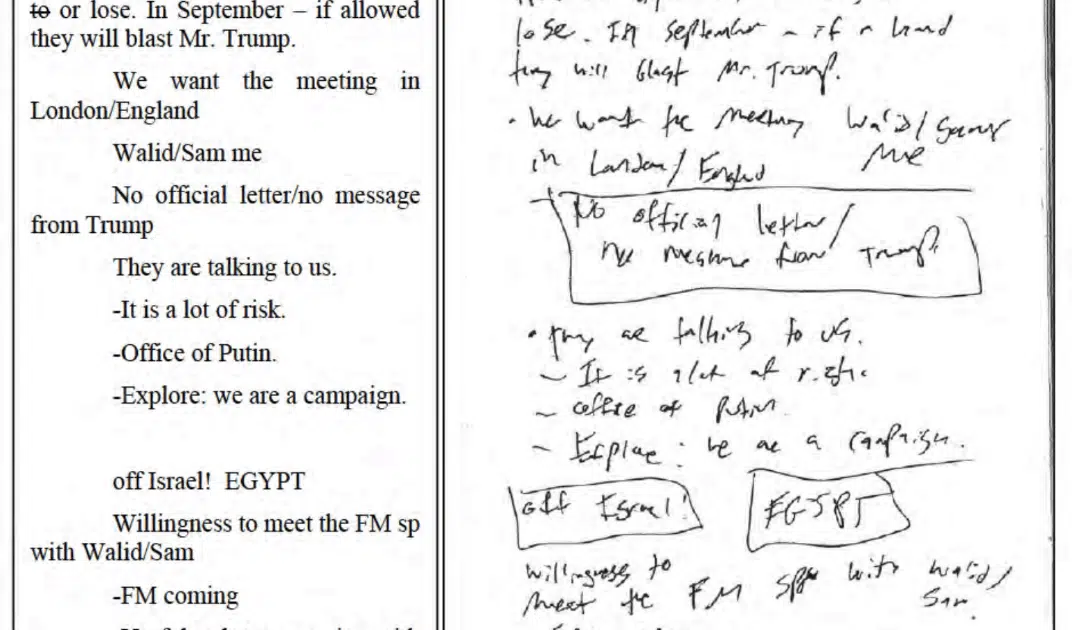 to or lose. In September – if allowed
they will blast Mr. Trump.
We want the meeting in
London/England
Walid/Sam me
No official letter/no message
from Trump
They are talking to us.
-It is a lot of risk.
-Office of Putin.
-Explore: we are a campaign.
off Israel! EGYPT
Willingness to meet the FM sp
with Walid/Sam
-FM coming
lose. In September – if allowed
they will blast Mr. Trump.
• We want the meeting Walid/Sam
me
in London/England
No official letter/
no message from Trump
• They are talking to us.
– It is a lot of risk.
– Office of Putin.
– Explore: we are a campaign.
off Israel! EGYPT
Willingness to
meet the FM sp with Walid/
Sam